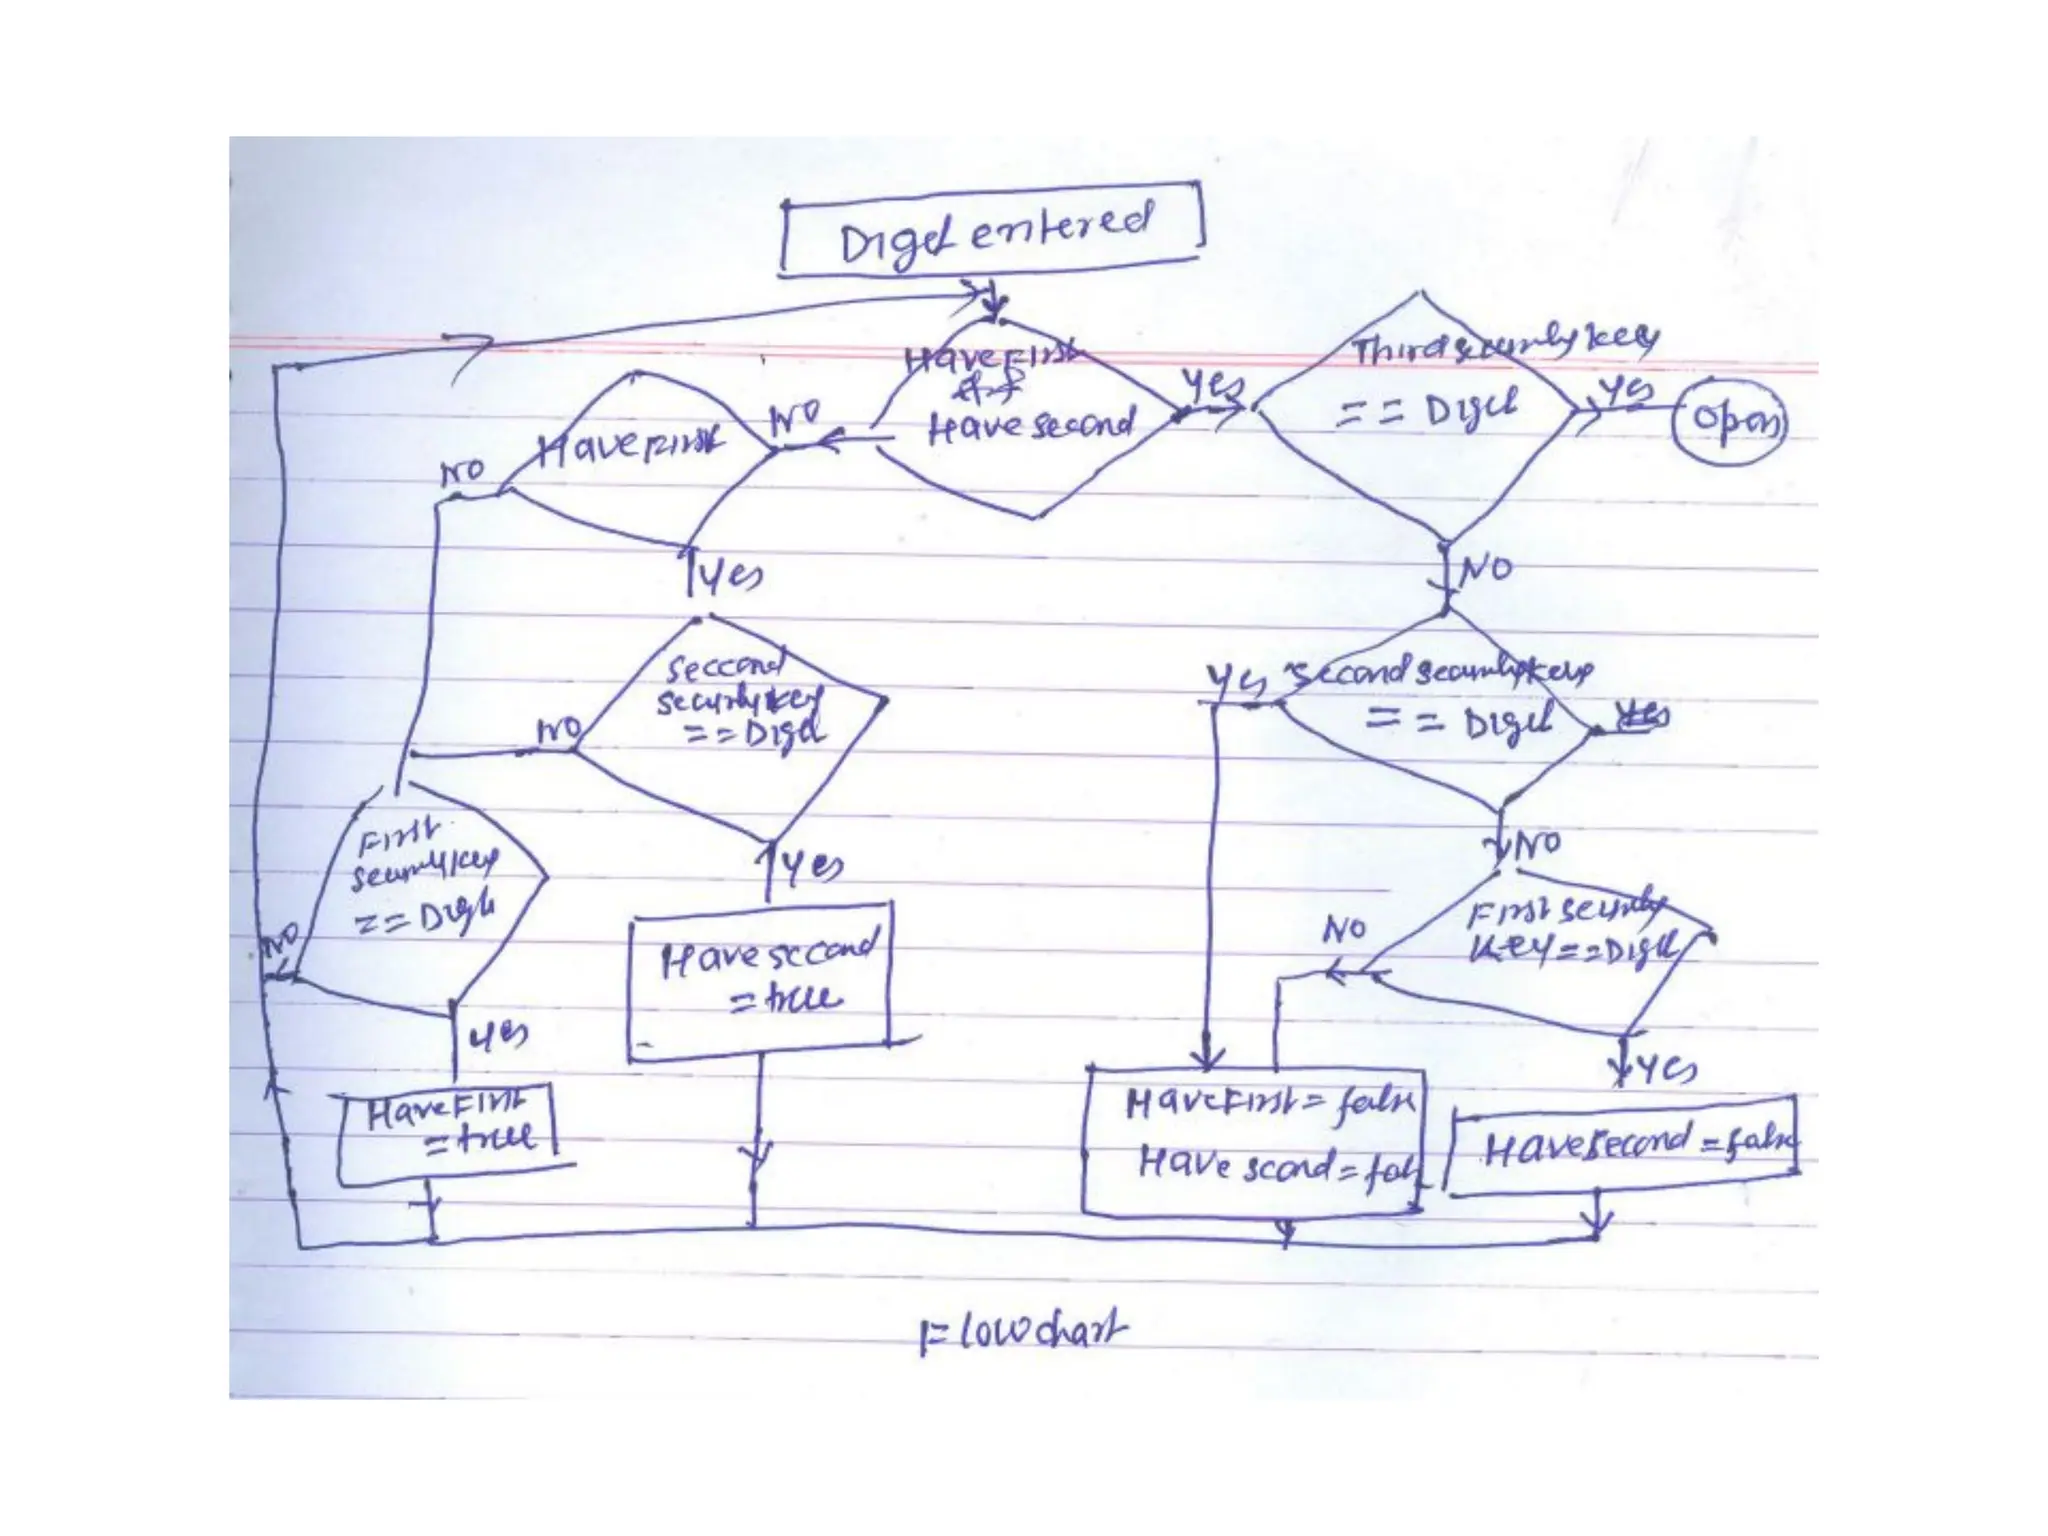 Digit entered
Have First
&&
Have second
Yes
Third security key
== Digit
Yes
open
NO
Have First
NO
Yes
NO
Seccond
security key
== Digit
NO
Yes
Have second
= true
First
security key
== Digit
NO
Yes
Have First
= true
Yes
Second security key
== Digit
Yes
NO
First security
Key == Digit
NO
Yes
Have First = false
Have scond = fals
Have second = false
Flow chart